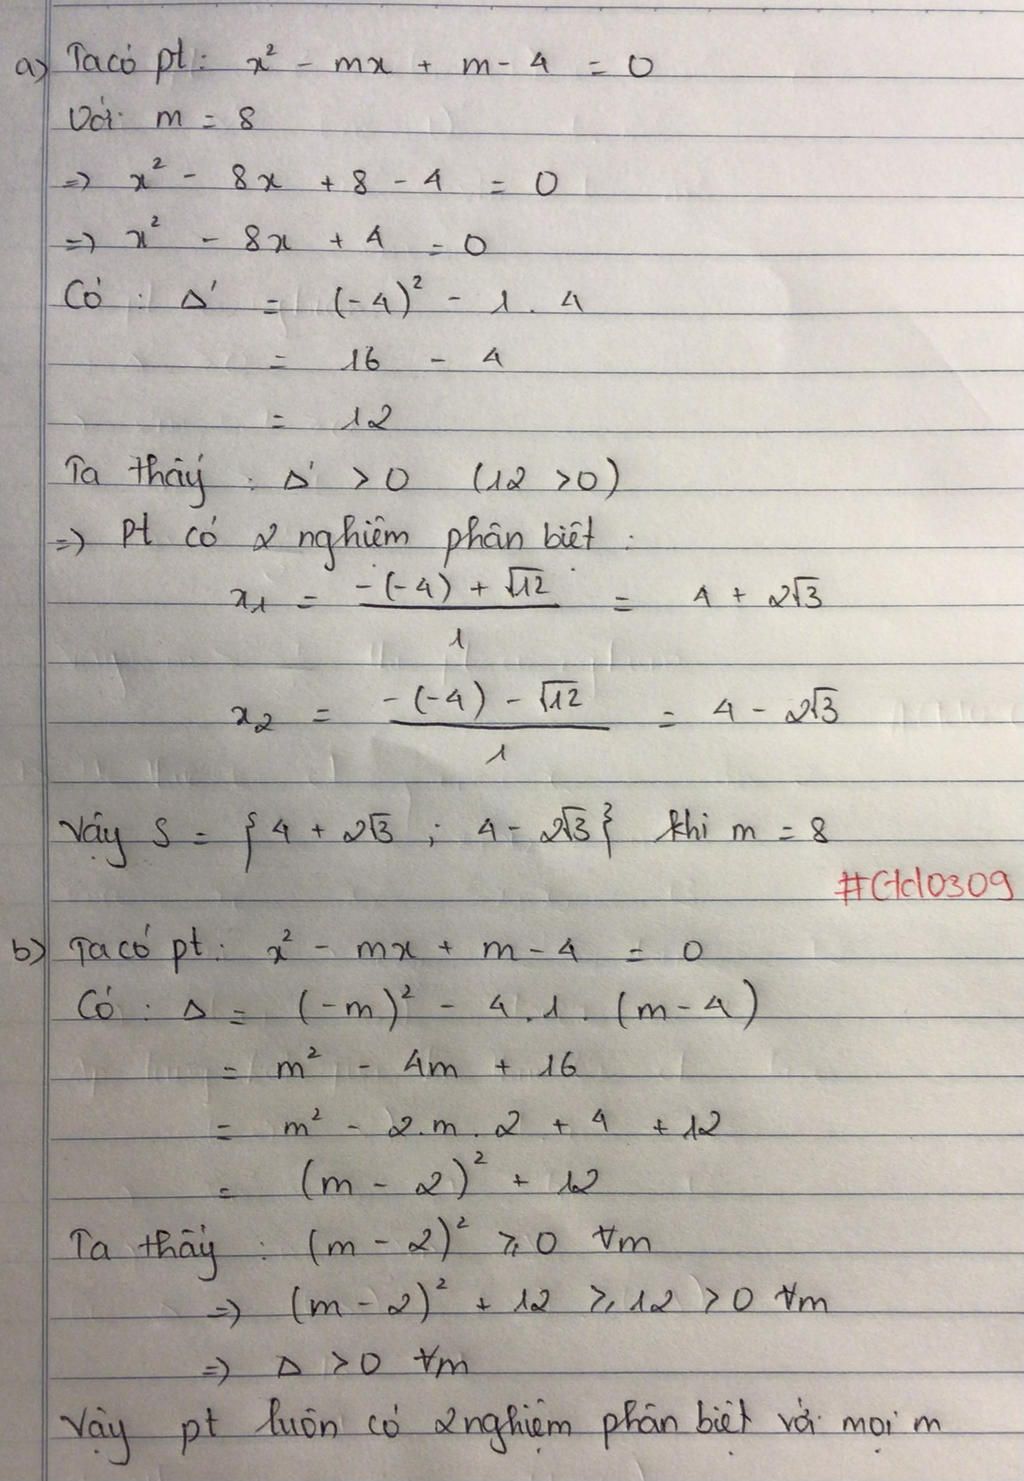 a) Ta có pt: x² - mx + m - 4 = 0
Với m = 8
=> x² - 8x + 8 - 4 = 0
=> x² - 8x + 4 = 0
Có : Δ' = (-4)² - 1 . 4
= 16 - 4
= 12
Ta thấy : Δ' > 0 (12 > 0)
=> Pt có 2 nghiệm phân biệt :
x₁ = (-(-4) + √12) / 1 = 4 + 2√3
x₂ = (-(-4) - √12) / 1 = 4 - 2√3
Vậy S = {4 + 2√3 ; 4 - 2√3} khi m = 8
#Ctd0309
b) Ta có pt: x² - mx + m - 4 = 0
Có : Δ = (-m)² - 4 . 1 . (m - 4)
= m² - 4m + 16
= m² - 2.m.2 + 4 + 12
= (m - 2)² + 12
Ta thấy : (m - 2)² ⩾ 0 ∀m
=> (m - 2)² + 12 ⩾ 12 > 0 ∀m
=> Δ > 0 ∀m
Vậy pt luôn có 2 nghiệm phân biệt với mọi m